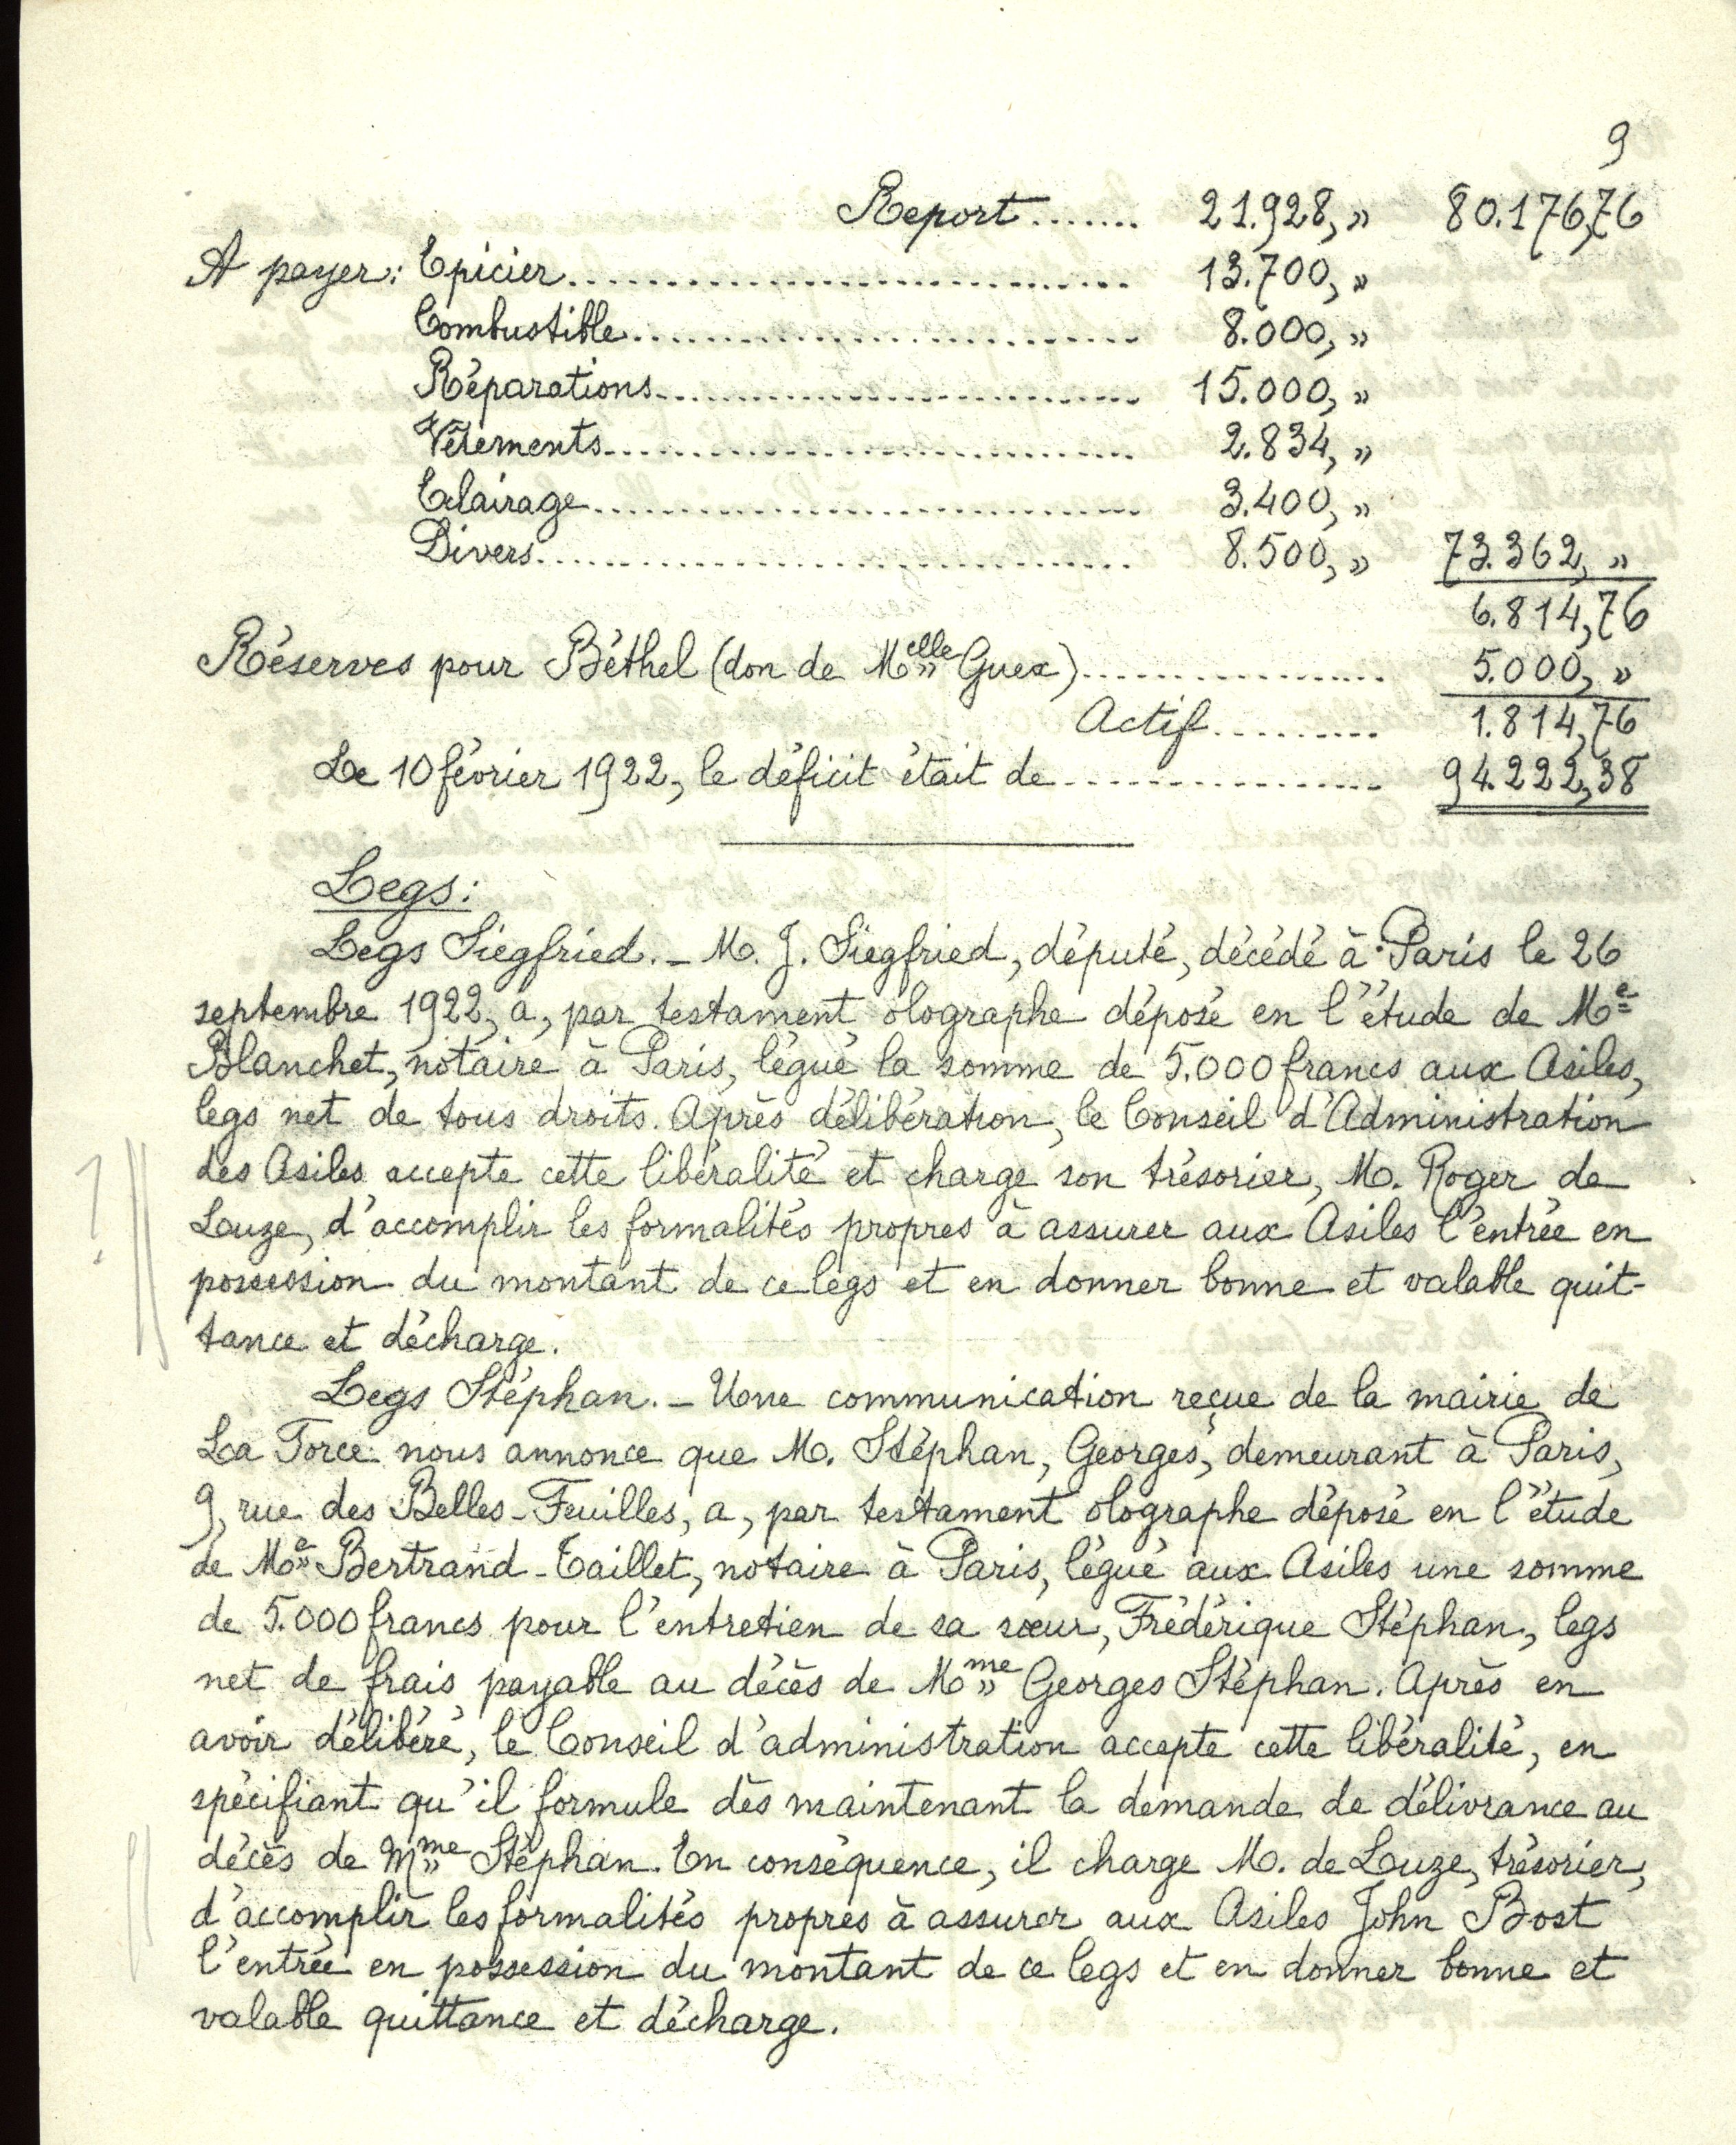 9
Report....... 21.928, » 80.176,76
A payer: Epicier.............................. 13.700, »
Combustible........................... 8.000, »
Réparations........................... 15.000, »
Vêtements............................. 2.834, »
Eclairage.............................. 3.400, »
Divers................................. 8.500, » 73.362, »
6.814,76
Réserves pour Béthel (don de Melle Guex).................. 5.000, »
Actif.......... 1.814,76
Le 10 février 1922, le déficit était de.................. 94.222,38
Legs:
Legs Siegfried. - M. J. Siegfried, député, décédé à Paris le 26
septembre 1922, a, par testament olographe déposé en l'étude de Me
Blanchet, notaire à Paris, légué la somme de 5.000 francs aux Asiles,
legs net de tous droits. Après délibération, le Conseil d'Administration
des Asiles accepte cette libéralité et charge son trésorier, M. Roger de
Luze, d'accomplir les formalités propres à assurer aux Asiles l'entrée en
possession du montant de ce legs et en donner bonne et valable quit-
tance et décharge.
Legs Stéphan. - Une communication reçue de la mairie de
La Force nous annonce que M. Stéphan, Georges, demeurant à Paris,
9, rue des Belles-Feuilles, a, par testament olographe déposé en l'étude
de Me Bertrand-Taillet, notaire à Paris, légué aux Asiles une somme
de 5.000 francs pour l'entretien de sa sœur, Frédérique Stéphan, legs
net de frais payable au décès de Mme Georges Stéphan. Après en
avoir délibéré, le Conseil d'administration accepte cette libéralité, en
spécifiant qu'il formule dès maintenant la demande de délivrance au
décès de Mme Stéphan. En conséquence, il charge M. de Luze, trésorier,
d'accomplir les formalités propres à assurer aux Asiles John Bost
l'entrée en possession du montant de ce legs et en donner bonne et
valable quittance et décharge.